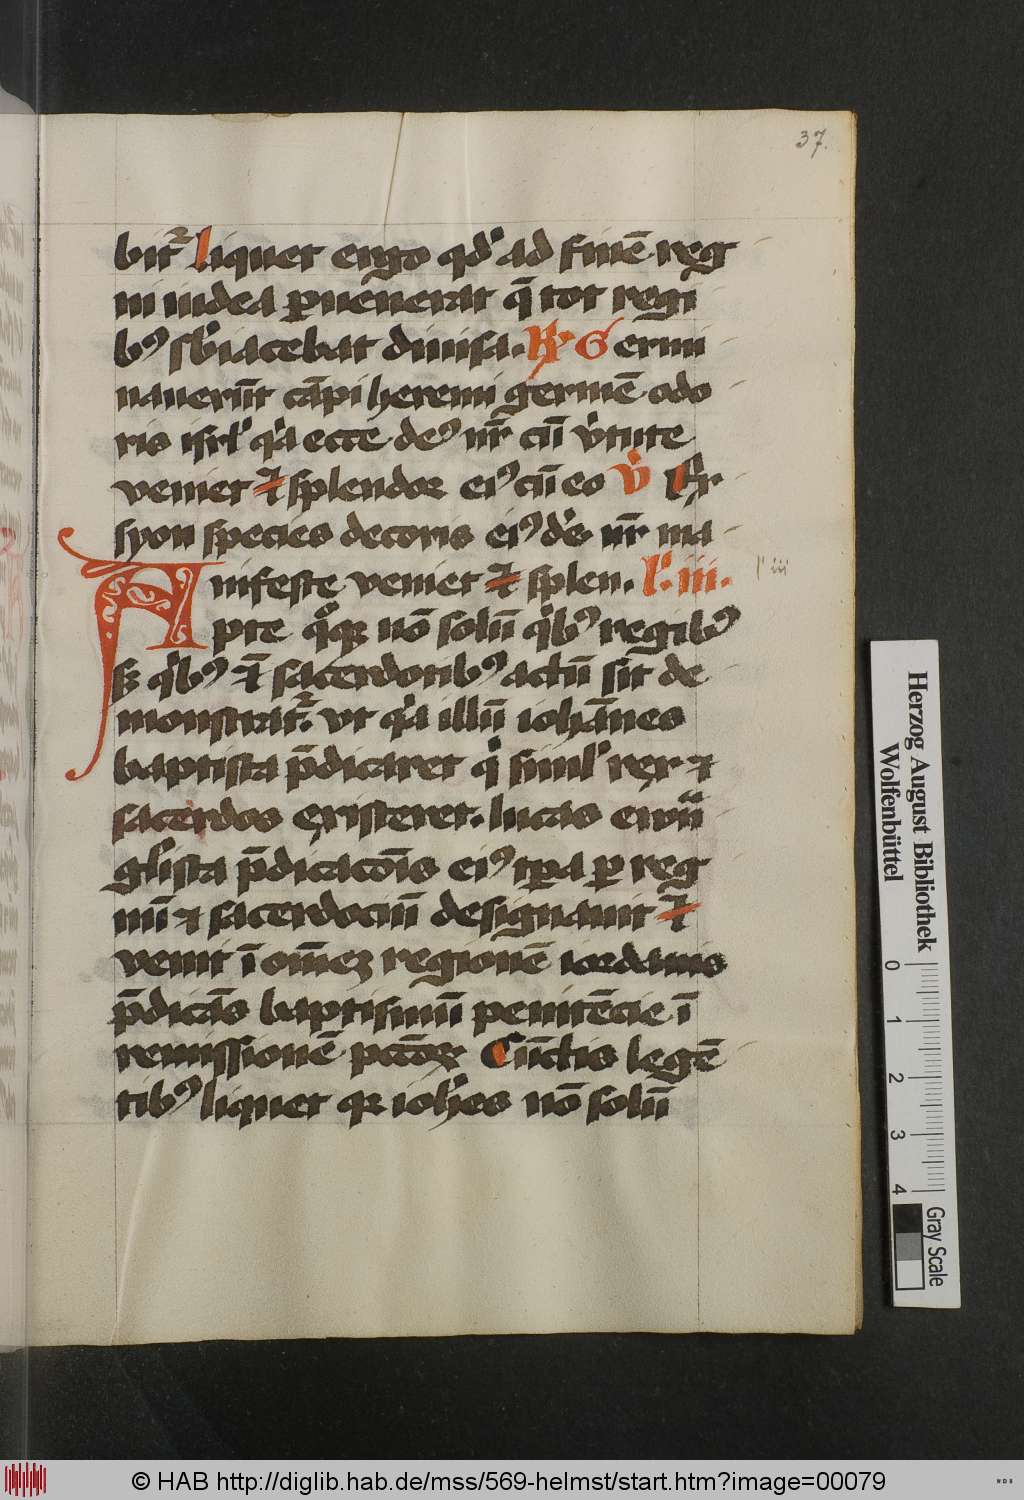 37.
bit᷑ liquet ergo qd' ad finē reg
ni iudea ꝑuenerat q̄ tot regi
bꝰ sb'iacebat diuisa. R͛ Germi
nauerūt cāpi heremi germē odo
ris isrl' q'a ecce deꝰ nr̄ cū v'tute
veniet ⁊ splendor eiꝰ cū eo v̓ Ex
syon species decoris eiꝰ de' nr̄ ma
nifeste veniet ⁊ splen. l' iii.
l' iii
Apte qͦqꝫ nō solū q'bꝰ regibꝰ
sꝫ q'bꝰ ⁊̄ sacerdotibꝰ actū sit de
monstrat᷑. vt q'a illū iohānes
baptista p̄dicaret q' simil' rex ⁊
sacerdos existeret. lucas ewū
gl'ista p̄dicacōis eiꝰ tꝑa ꝑ reg
nū ⁊ sacerdociū designauit ⁊
venit ī om̄eꝫ regionē iordanis
p̄dicās baptismū penitēcie ī
remissionē pccōꝝ Cūctis legē
tibꝰ liquet qꝫ ioh'es nō solū
Herzog August Bibliothek
Wolfenbüttel
0 1 2 3 4
Gray Scale
© HAB http://diglib.hab.de/mss/569-helmst/start.htm?image=00079